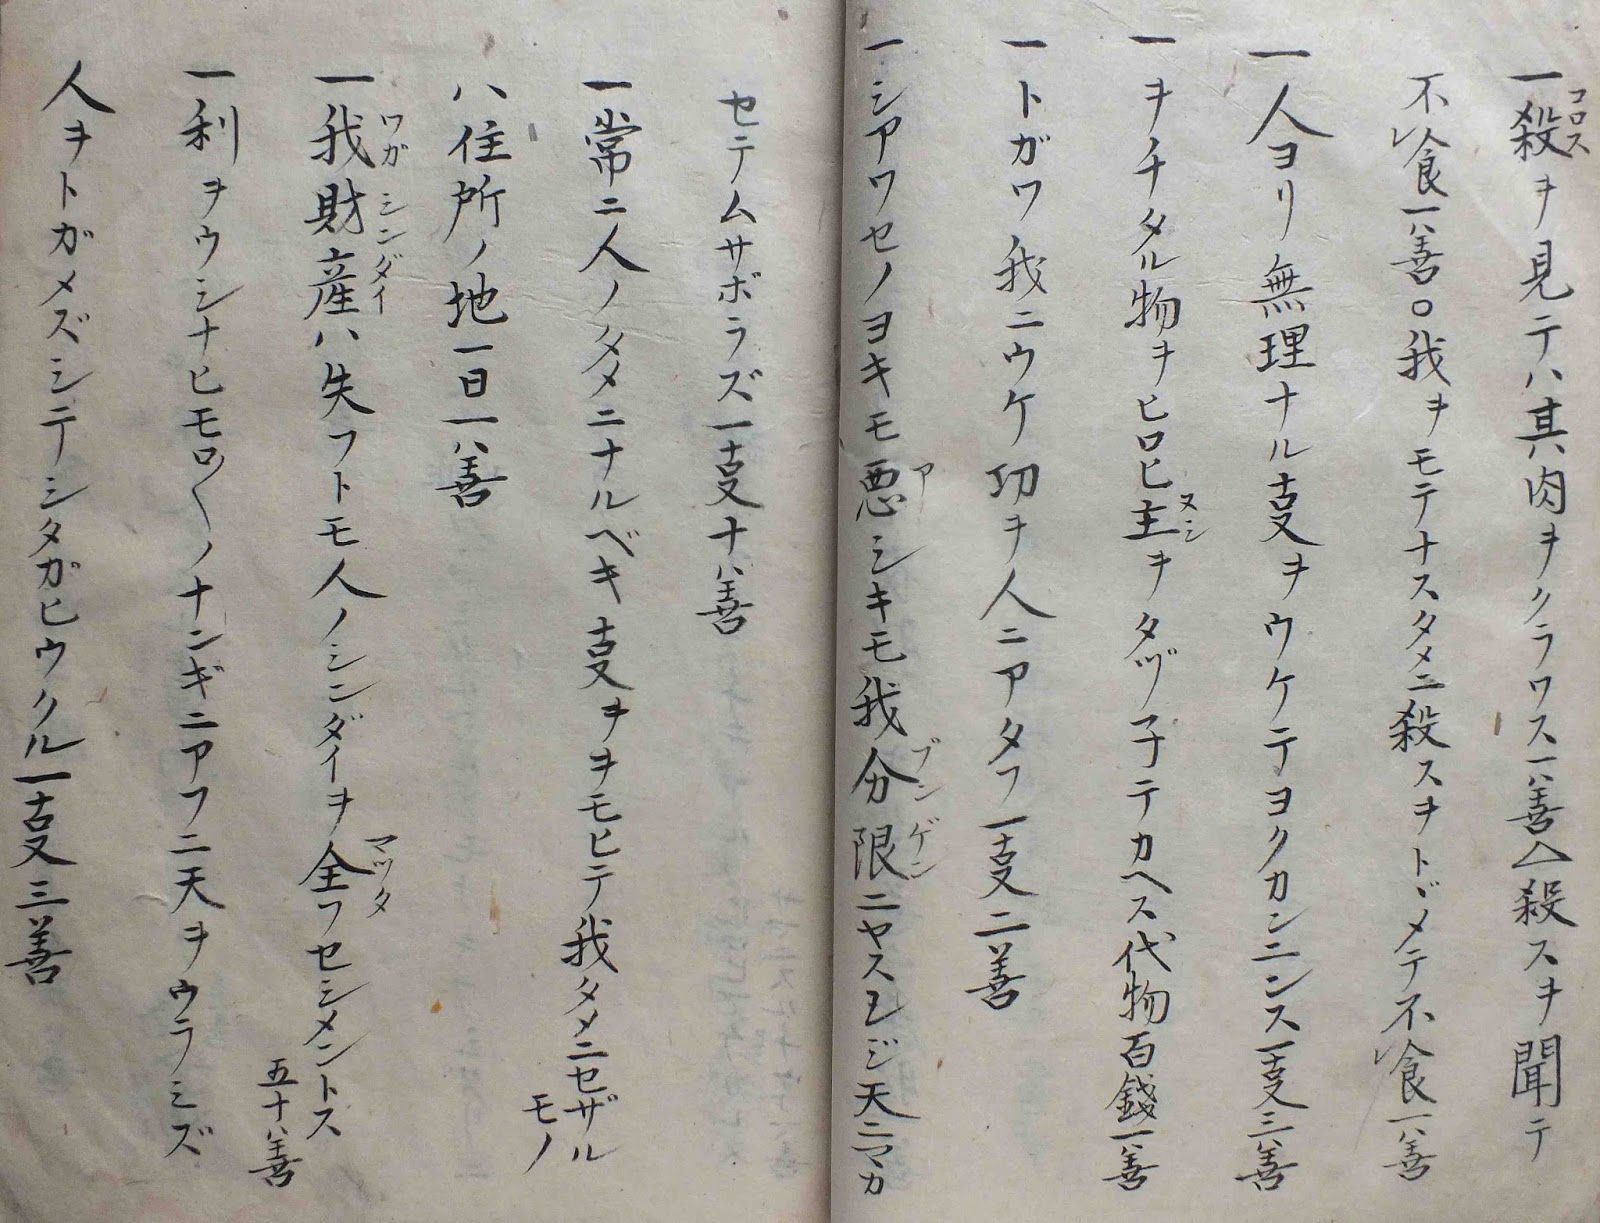 一殺コロスヲ見テハ其肉ヲクラワス一善△殺スヲ聞テ
不レ食一善○我ヲモテナスタメニ殺スヲトヾメテ不レ食一善
一人ヨリ無理ナル叓ヲウケテヨクカンニンス一叓三善
一ヲチタル物ヲヒロヒ主ヌシヲタヅ子テカヘス代物百錢一善
一トガワ我ニウケ功ヲ人ニアタフ一叓二善
一シアワセノヨキモ悪アシキモ我分限ブンゲンニヤスンジ天ニマカ
セテムサボラズ一叓十善
一常ニ人ノタメニナルベキ叓ヲヲモヒテ我タメニセザルモノ
ハ住所ノ地一日一善
一我ワガ財産シンダイハ失フトモ人ノシンダイヲ全マツタフセシメントス五十善
一利ヲウシナヒモロ〱ノナンギニアフニ天ヲウラミズ
人ヲトガメズシテシタガヒウクル一叓三善